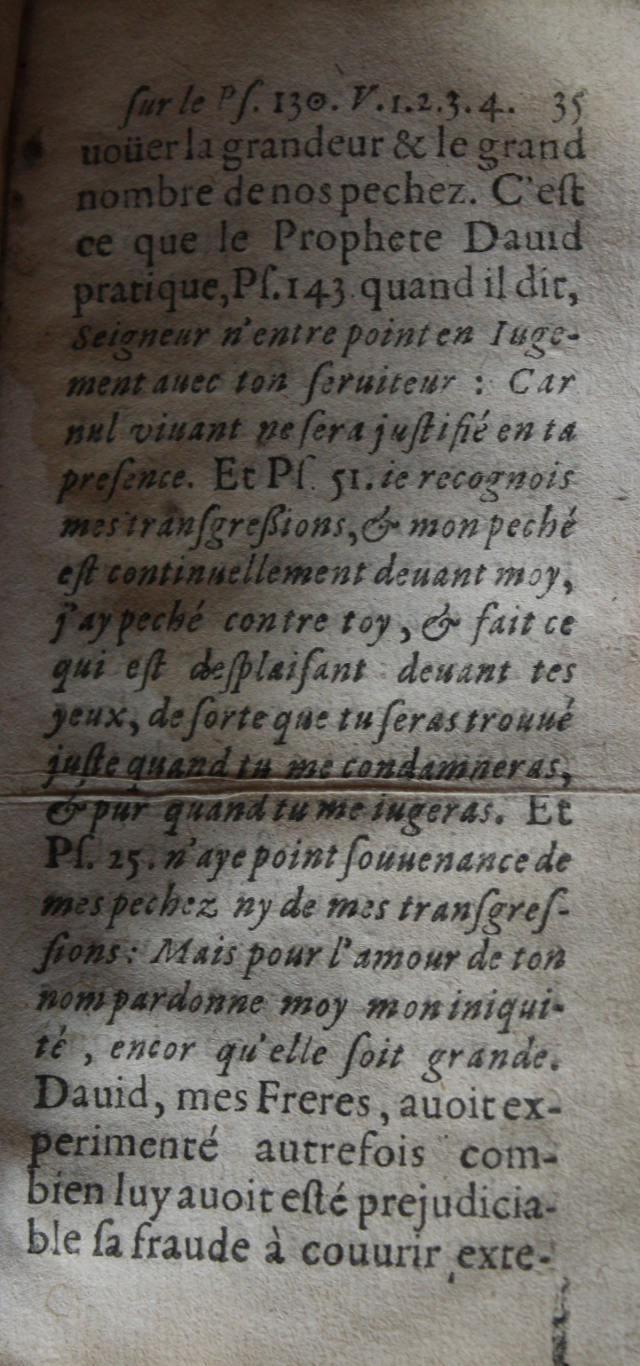 ſur le Pſ. 130. V.1.2.3.4. 35
uoüer la grandeur & le grand
nombre de nos pechez. C'eſt
ce que le Prophete Dauid
pratique, Pſ.143 quand il dit,
Seigneur n'entre point en Iuge-
ment auec ton ſeruiteur : Car
nul viuant ne ſera juſtifié en ta
preſence. Et Pſ. 51. ie recognois
mes tranſgreßions, & mon peché
eſt continuellement deuant moy,
j'ay peché contre toy, & fait ce
qui eſt deſplaiſant deuant tes
yeux, de ſorte que tu ſeras trouué
juſte quand tu me condamneras,
& pur quand tu me iugeras. Et
Pſ. 25. n'aye point ſouuenance de
mes pechez ny de mes tranſgreſ-
ſions : Mais pour l'amour de ton
nom pardonne moy mon iniqui-
té , encor qu'elle ſoit grande.
Dauid, mes Freres, auoit ex-
perimenté autrefois com-
bien luy auoit eſté prejudicia-
ble ſa fraude à couurir exte-